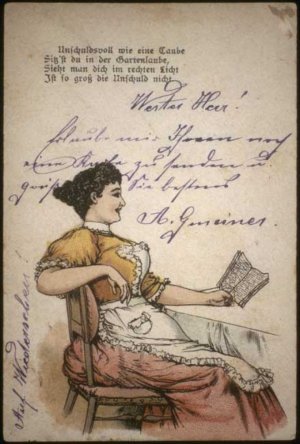 Unschuldsvoll wie eine Taube
Sitz'st du in der Gartenlaube,
Sieht man dich im rechten Licht
Ist so groß die Unschuld nicht.
Werter Herr!
Erlaube mir Ihnen noch
eine Karte zu senden u
grüße Sie bestens
A. Gmeiner.
Auf Wiedersehen!